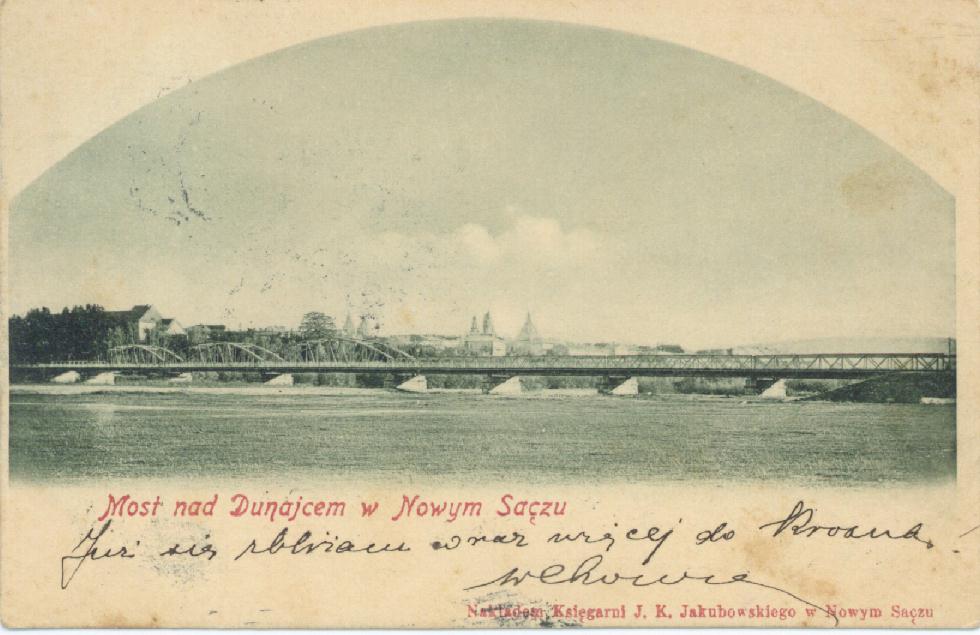 Most nad Dunajcem w Nowym Sączu
Już się zbliżam coraz więcej do Krosna.
Nakładem Księgarni J. K. Jakubowskiego w Nowym Sączu